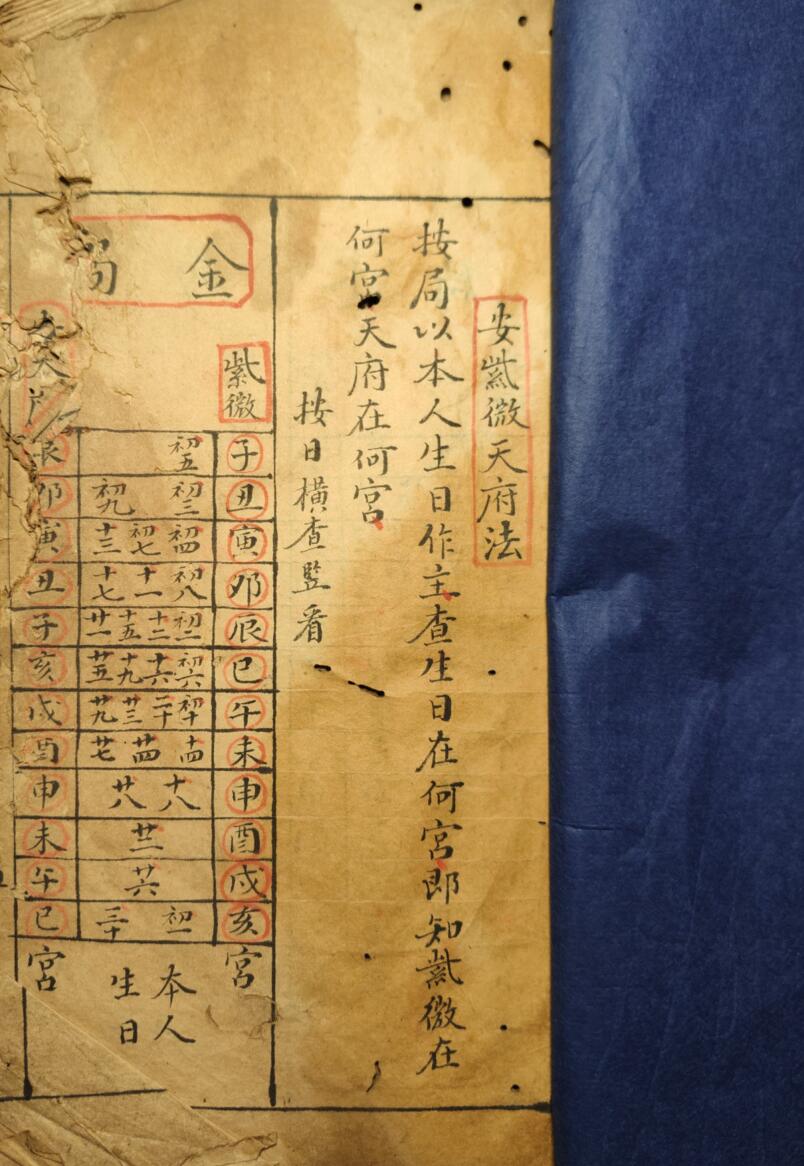 安紫微天府法
按局以本人生日作主查生日在何宮即知紫微在
何宮天府在何宮
按日橫查監看
金局
紫微
天府
子 初五 辰
丑 初三 初九 卯
寅 初四 初七 十三 寅
卯 初八 十一 十七 丑
辰 初二 十二 十五 廿一 子
巳 初六 十六 十九 廿五 亥
午 初十 二十 廿三 廿九 戌
未 十四 廿四 廿七 酉
申 十八 廿八 申
酉 廿二 未
戌 廿六 午
亥 初一 三十 巳
宮
本人
生日
宮